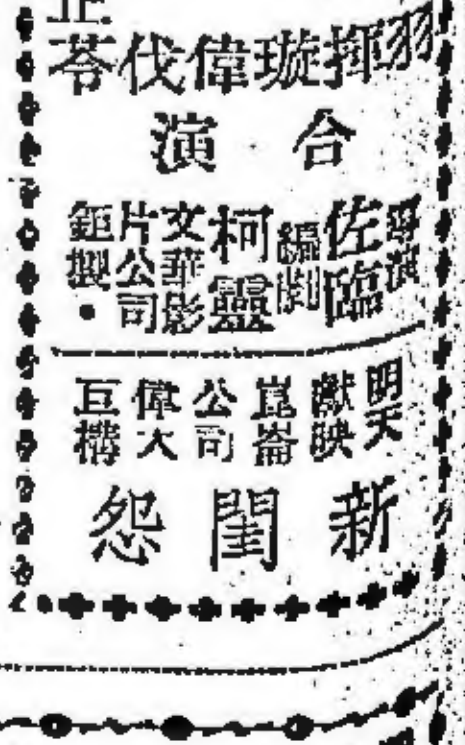 羽揮璇偉伐苓
合演
導演
佐臨
編劇
柯靈
文華影
片公司
鉅製•
明天
獻映
崑崙
公司
偉大
巨構
新閨怨